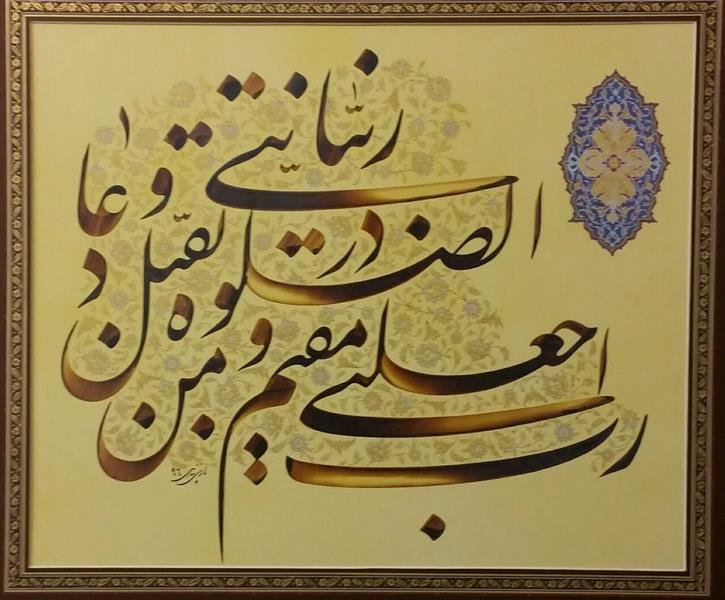 رب اجعلنی مقیم
الصلوة و من
ذریتی ربنا
و تقبل دعا
۹۶